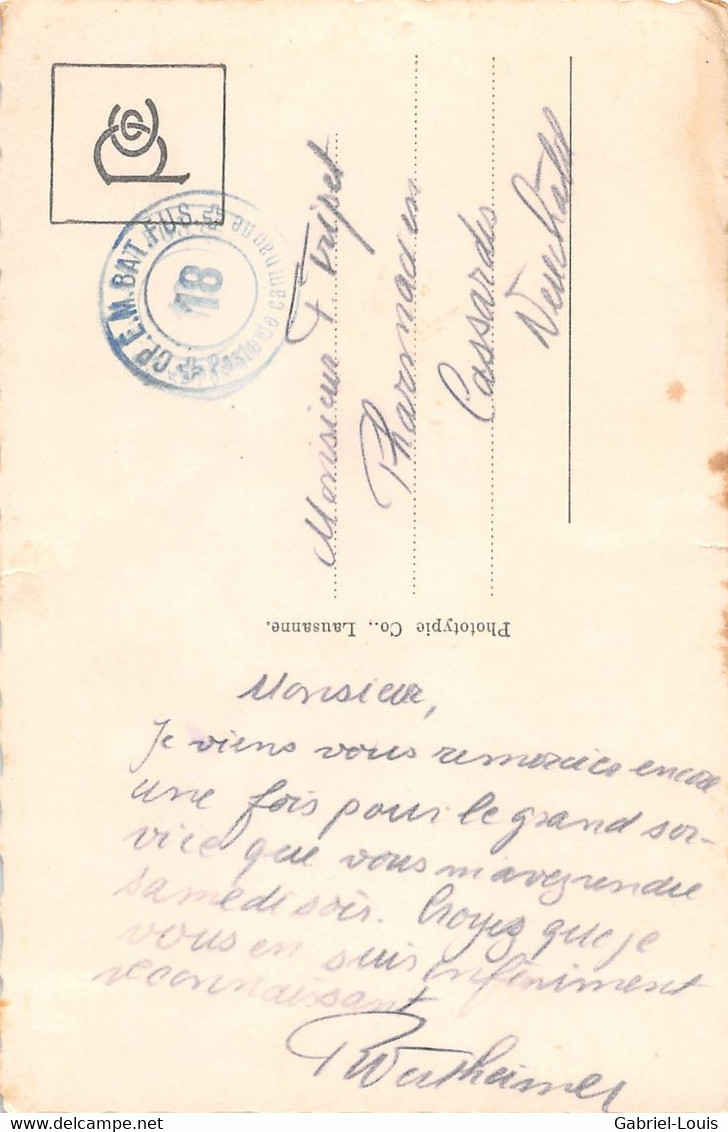 CP. E. M. BAT. FUS.
18
Poste de campagne
Monsieur F Tripet
Pharmacien
Cassardes
Neuchâtel
Phototypie Co., Lausanne.
Monsieur,
Je viens vous remercier encore
une fois pour le grand ser-
vice que vous m'avez rendu
samedi soir. Croyez que je
vous en suis infiniment
reconnaissant
PWertheimer
www.delcampe.net
Gabriel-Louis